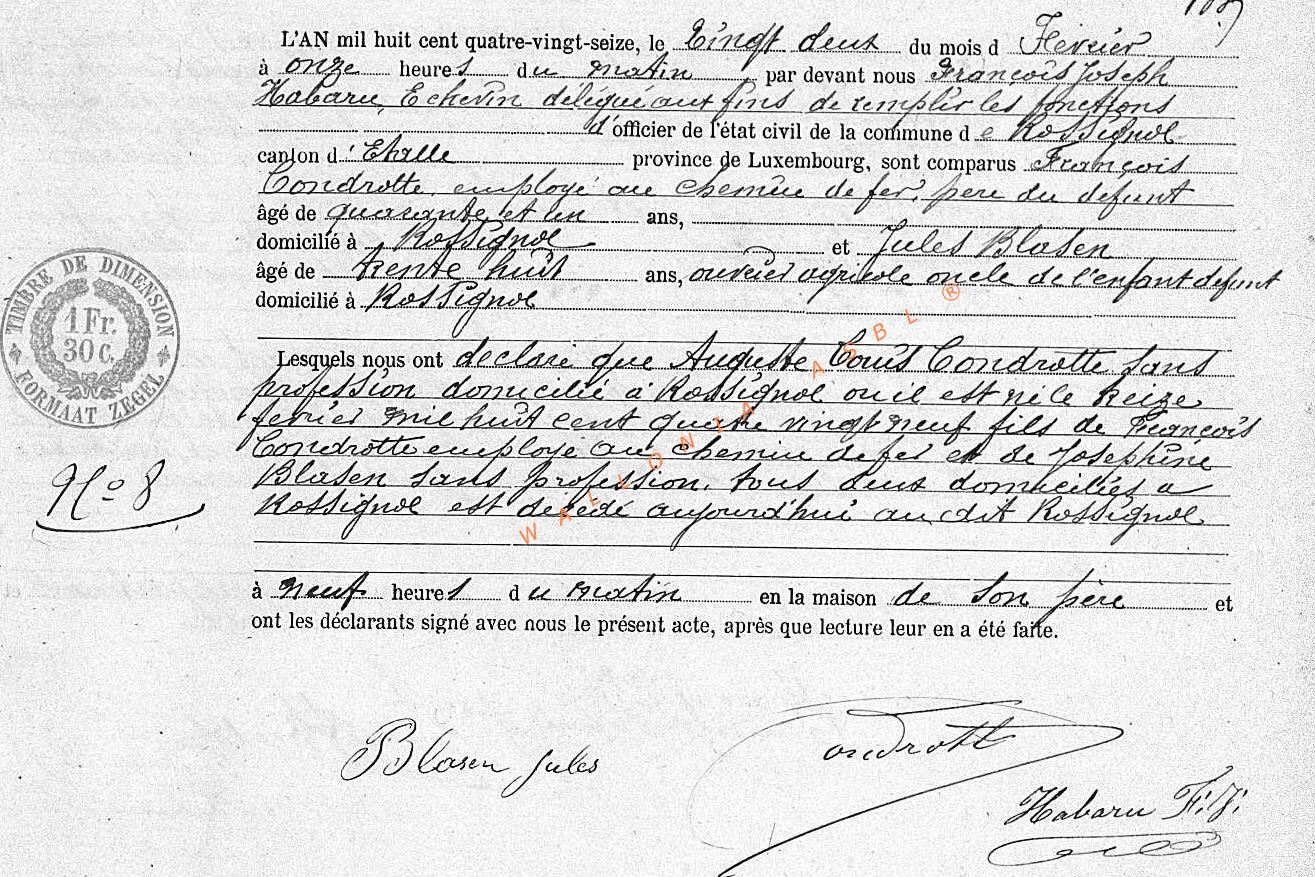 L'AN mil huit cent quatre-vingt-seize, le Vingt deux du mois d Fevrier
à onze heures du matin par devant nous François Joseph
Habaru, Echevin délégué aux fins de remplir les fonctions
d'officier de l'état civil de la commune de Rossignol
canton d'Etalle province de Luxembourg, sont comparus François
Condrotte, employé au chemin de fer, pere du defunt
âgé de quarante et un ans,
domicilié à Rossignol et Jules Blasen
âgé de trente huit ans, ouvrier agricole oncle de l'enfant defunt
domicilié à Rossignol
Lesquels nous ont declaré que Auguste Louis Condrotte sans
profession domicilié à Rossignol ou il est né le treize
fevrier mil huit cent quatre vingt neuf fils de François
Condrotte employé au chemin de fer et de Josephine
Blasen sans profession, tous deux domiciliés a
Rossignol est décédé aujourd'hui au dit Rossignol
à neuf heures du matin en la maison de son père et
ont les déclarants signé avec nous le présent acte, après que lecture leur en a été faite.
TIMBRE DE DIMENSION
1 Fr.
30 C.
FORMAAT ZEGEL
No 8
WALLONIA ASBL ®
Blasen Jules
Condrotte
Habaru F. J.